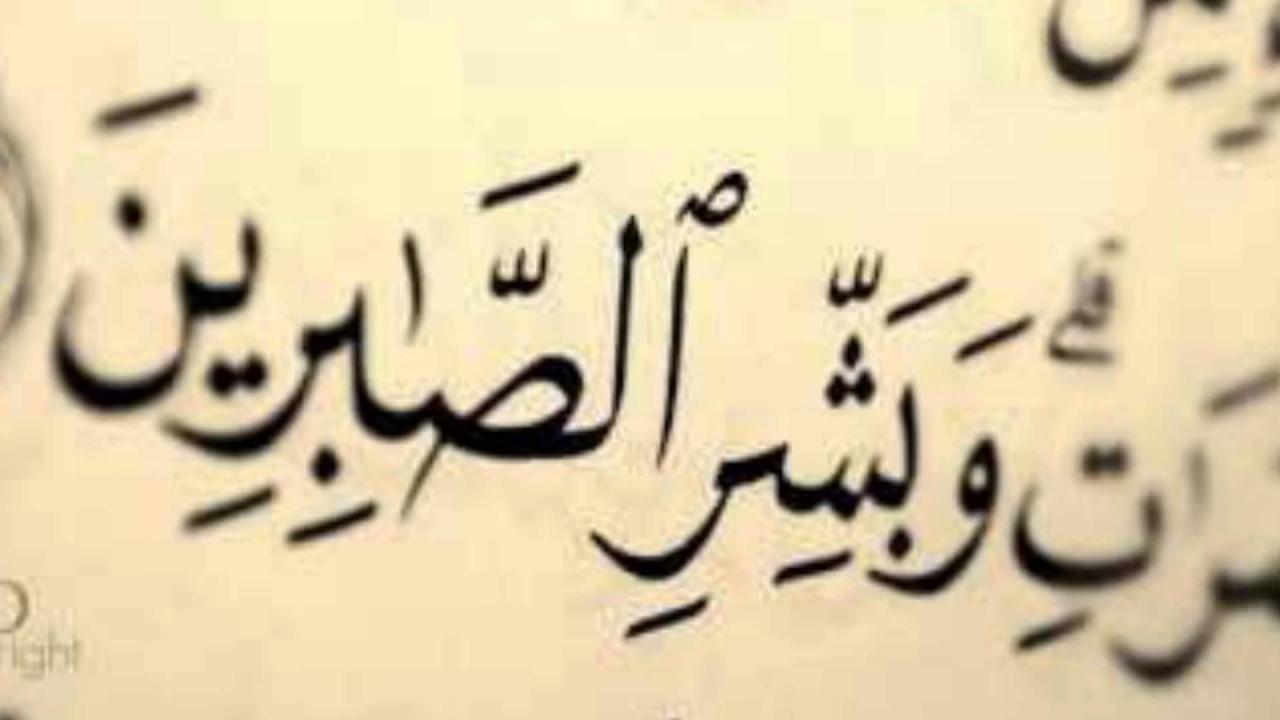 ٰتِ ۗ وَبَشِّرِ ٱلصَّٰبِرِينَ
right